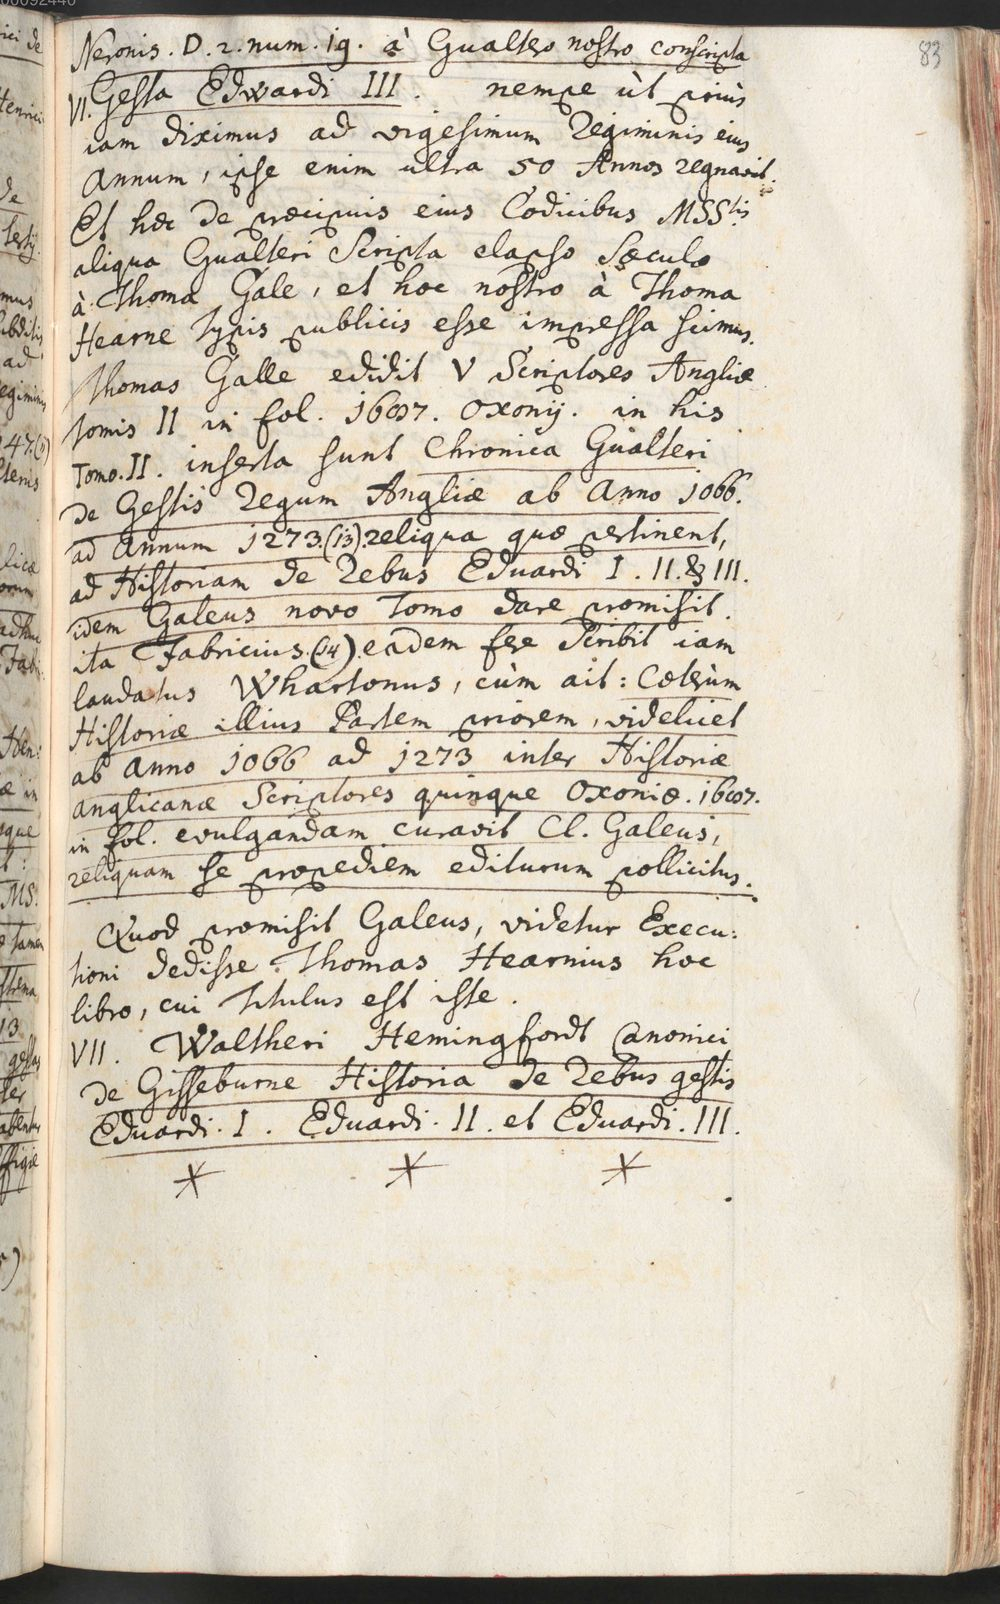 83
Neronis. D. 2. num. 19. à Gualtero nostro conscripta
VI. Gesta Edwardi III. nempe ùt priùs
iam diximus ad vigesimum Regiminis eius
Annum, ipse enim ultra 50 Annos regnavit.
Et hæc de præcipuis eius Codicibus MSStis
aliqua Gualteri Scripta elapso Sæculo
à Thoma Gale, et hoc nostro à Thoma
Hearne Typis publicis esse impressa scimus.
Thomas Galle edidit V Scriptores Angliæ
tomis II in fol. 1687. Oxonij. in his
Tomo. II. inserta sunt Chronica Gualteri
de Gestis Regum Angliæ ab Anno 1066.
ad Annum 1273.(13). reliqua quæ pertinent,
ad Historiam de Rebus Eduardi I. II. & III.
idem Galeus novo Tomo dare promisit.
ita Fabricius.(14). eadem fere Scribit iam
laudatus Whartonus, cùm ait: Cœterùm
Historiæ illius Partem priorem, videlicet
ab Anno 1066 ad 1273 inter Historiæ
anglicanæ Scriptores quinque Oxoniæ. 1687.
in fol. evulgandam curavit Cl. Galeus,
reliquam se propediem editurum pollicitus.
Quod promisit Galeus, videtur Execu:
tioni dedisse Thomas Hearnius hoc
libro, cui Titulus est iste.
VII. Waltheri Hemingfordt Canonici
de Gisseburne Historia de Rebus gestis
Eduardi. I. Eduardi. II. et Eduardi. III.